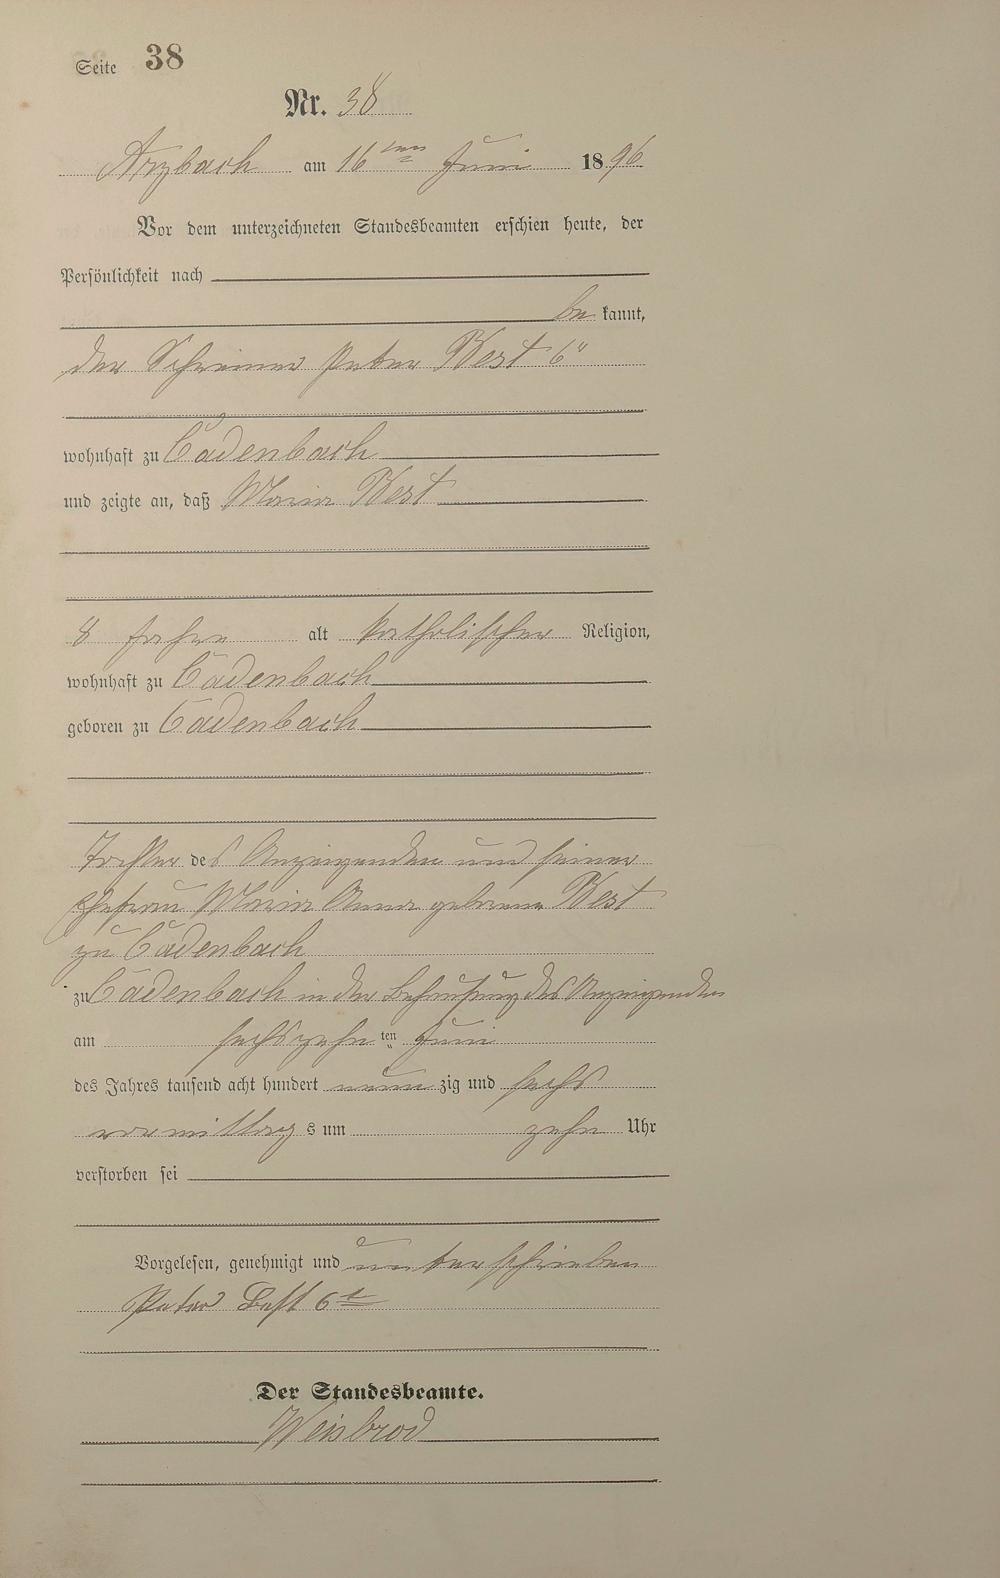 Seite 38
Nr. 38
Arzbach am 16ten Juni 1896
Vor dem unterzeichneten Standesbeamten erschien heute, der
Persönlichkeit nach
be kannt,
der Schreiner Peter Best 6r
wohnhaft zu Cadenbach
und zeigte an, daß Maria Best
8 Jahre alt katholischer Religion,
wohnhaft zu Cadenbach
geboren zu Cadenbach
Tochter des Anzeigenden und seiner
Ehefrau Maria Anna geborene Best
zu Cadenbach
zu Cadenbach in der Behausung des Anzeigenden
am sechszehnten Juni
des Jahres tausend acht hundert neun zig und sechs
vormittag s um zehn Uhr
verstorben sei
Vorgelesen, genehmigt und unterschrieben
Peter Best 6t
Der Standesbeamte.
Weisbrod